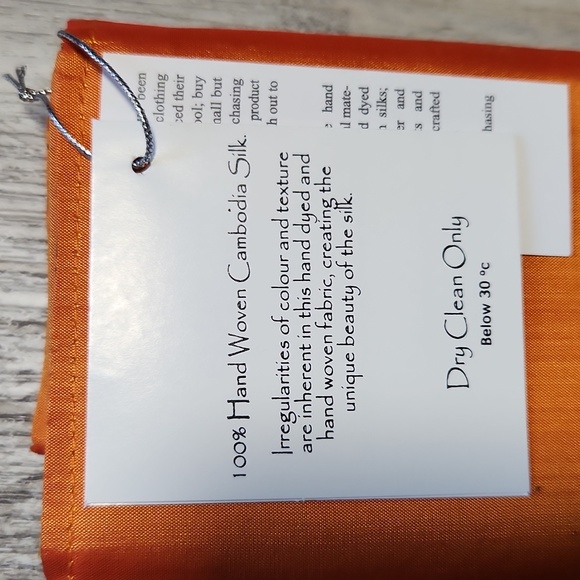 100% Hand Woven Cambodia Silk.
Irregularities of colour and texture
are inherent in this hand dyed and
hand woven fabric, creating the
unique beauty of the silk.
Dry Clean Only
Below 30 °c
been
clothing
their
buy
but
chasing
product
out to
hand
dyed
silks;
and
and